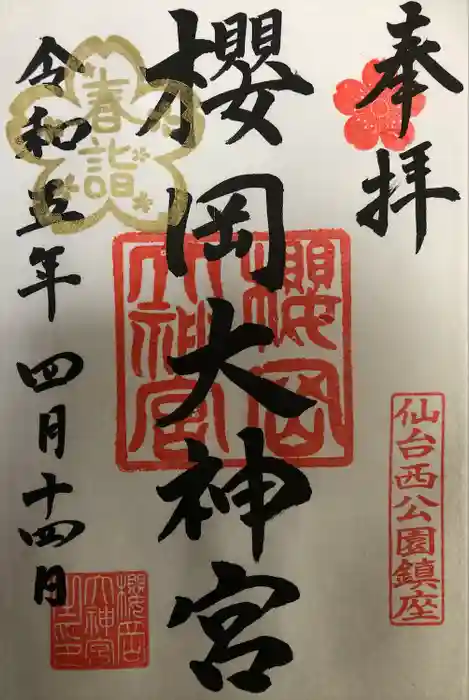 奉拝
仙台西公園鎮座
櫻岡大神宮
櫻岡
大神宮
春詣
令和五年四月十四日
櫻岡
大神宮
之印